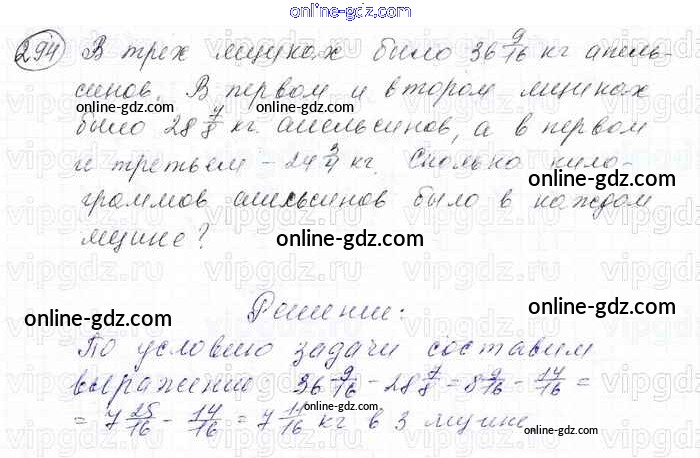 online-gdz.com
294 В трех ящиках было 36 9/16 кг апель-
синов. В первом и втором ящиках
online-gdz.com online-gdz.com
было 28 7/8 кг апельсинов, а в первом
и третьем - 24 3/4 кг. Сколько кило-
online-gdz.com online-gdz.com
граммов апельсинов было в каждом
ящике?
online-gdz.com
vipgdz.ru vipgdz.ru vipgdz.ru vipgdz.ru
Решение:
online-gdz.com online-gdz.com
По условию задачи составим
выражение 36 9/16 - 28 7/8 = 8 9/16 - 14/16 =
online-gdz.com online-gdz.com
= 7 25/16 - 14/16 = 7 11/16 кг в 3 ящике
online-gdz.com
online-gdz.com